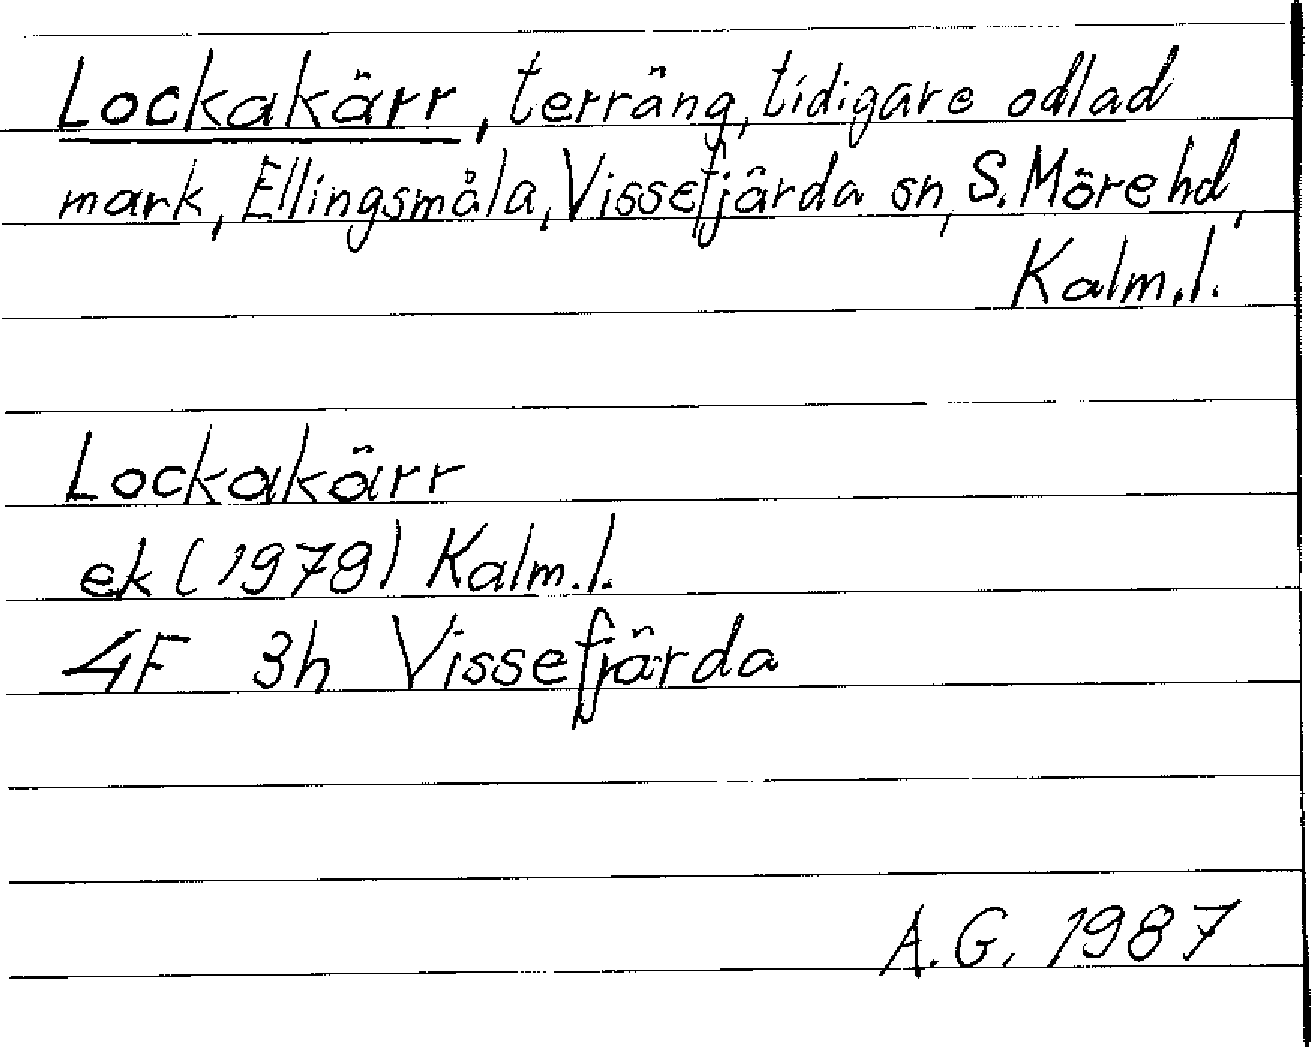 Lockakärr, terräng, tidigare odlad
mark, Ellingsmåla, Vissefjärda sn, S. Möre hd,
Kalm.l.
Lockakärr
ek (1979) Kalm.l.
4F 3h Vissefjärda
A.G. 1987